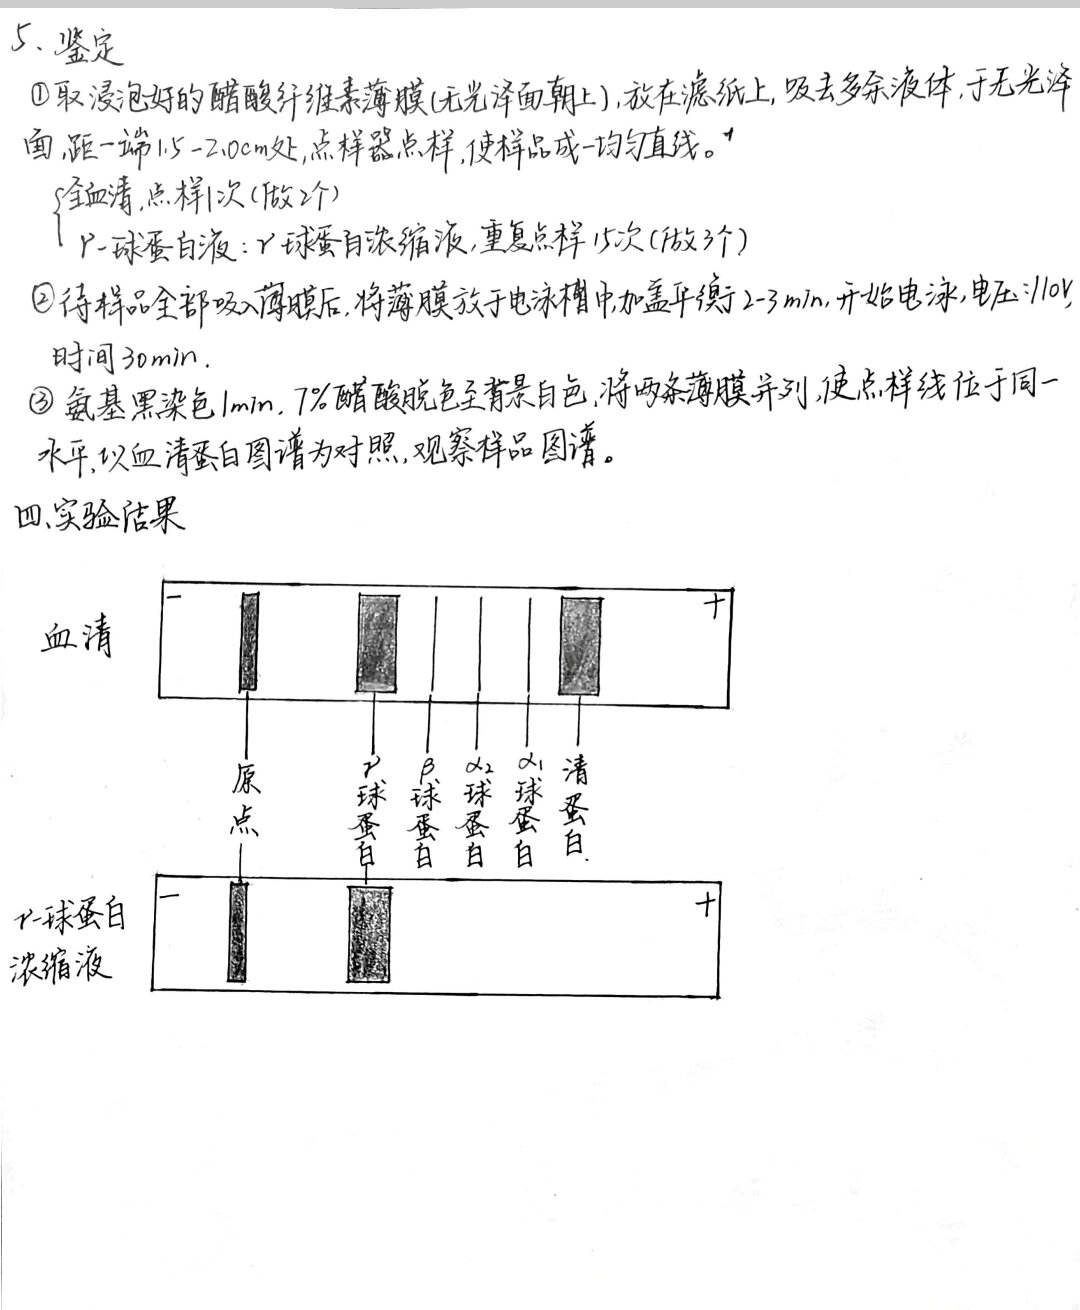 5、鉴定
①取浸泡好的醋酸纤维素薄膜(无光泽面朝上),放在滤纸上,吸去多余液体,于无光泽
面,距一端1.5-2.0cm处,点样器点样,使样品成一均匀直线。
全血清,点样1次(做2个)
γ-球蛋白液:γ球蛋白浓缩液,重复点样15次(做3个)
②待样品全部吸入薄膜后,将薄膜放于电泳槽中,加盖平衡2-3min,开始电泳,电压:110V,
时间30min.
③氨基黑染色1min,7%醋酸脱色至背景白色,将两条薄膜并列,使点样线位于同一
水平,以血清蛋白图谱为对照,观察样品图谱。
四、实验结果
血清
- +
原点
γ球蛋白
β球蛋白
α2球蛋白
α1球蛋白
清蛋白.
γ-球蛋白
浓缩液
- +